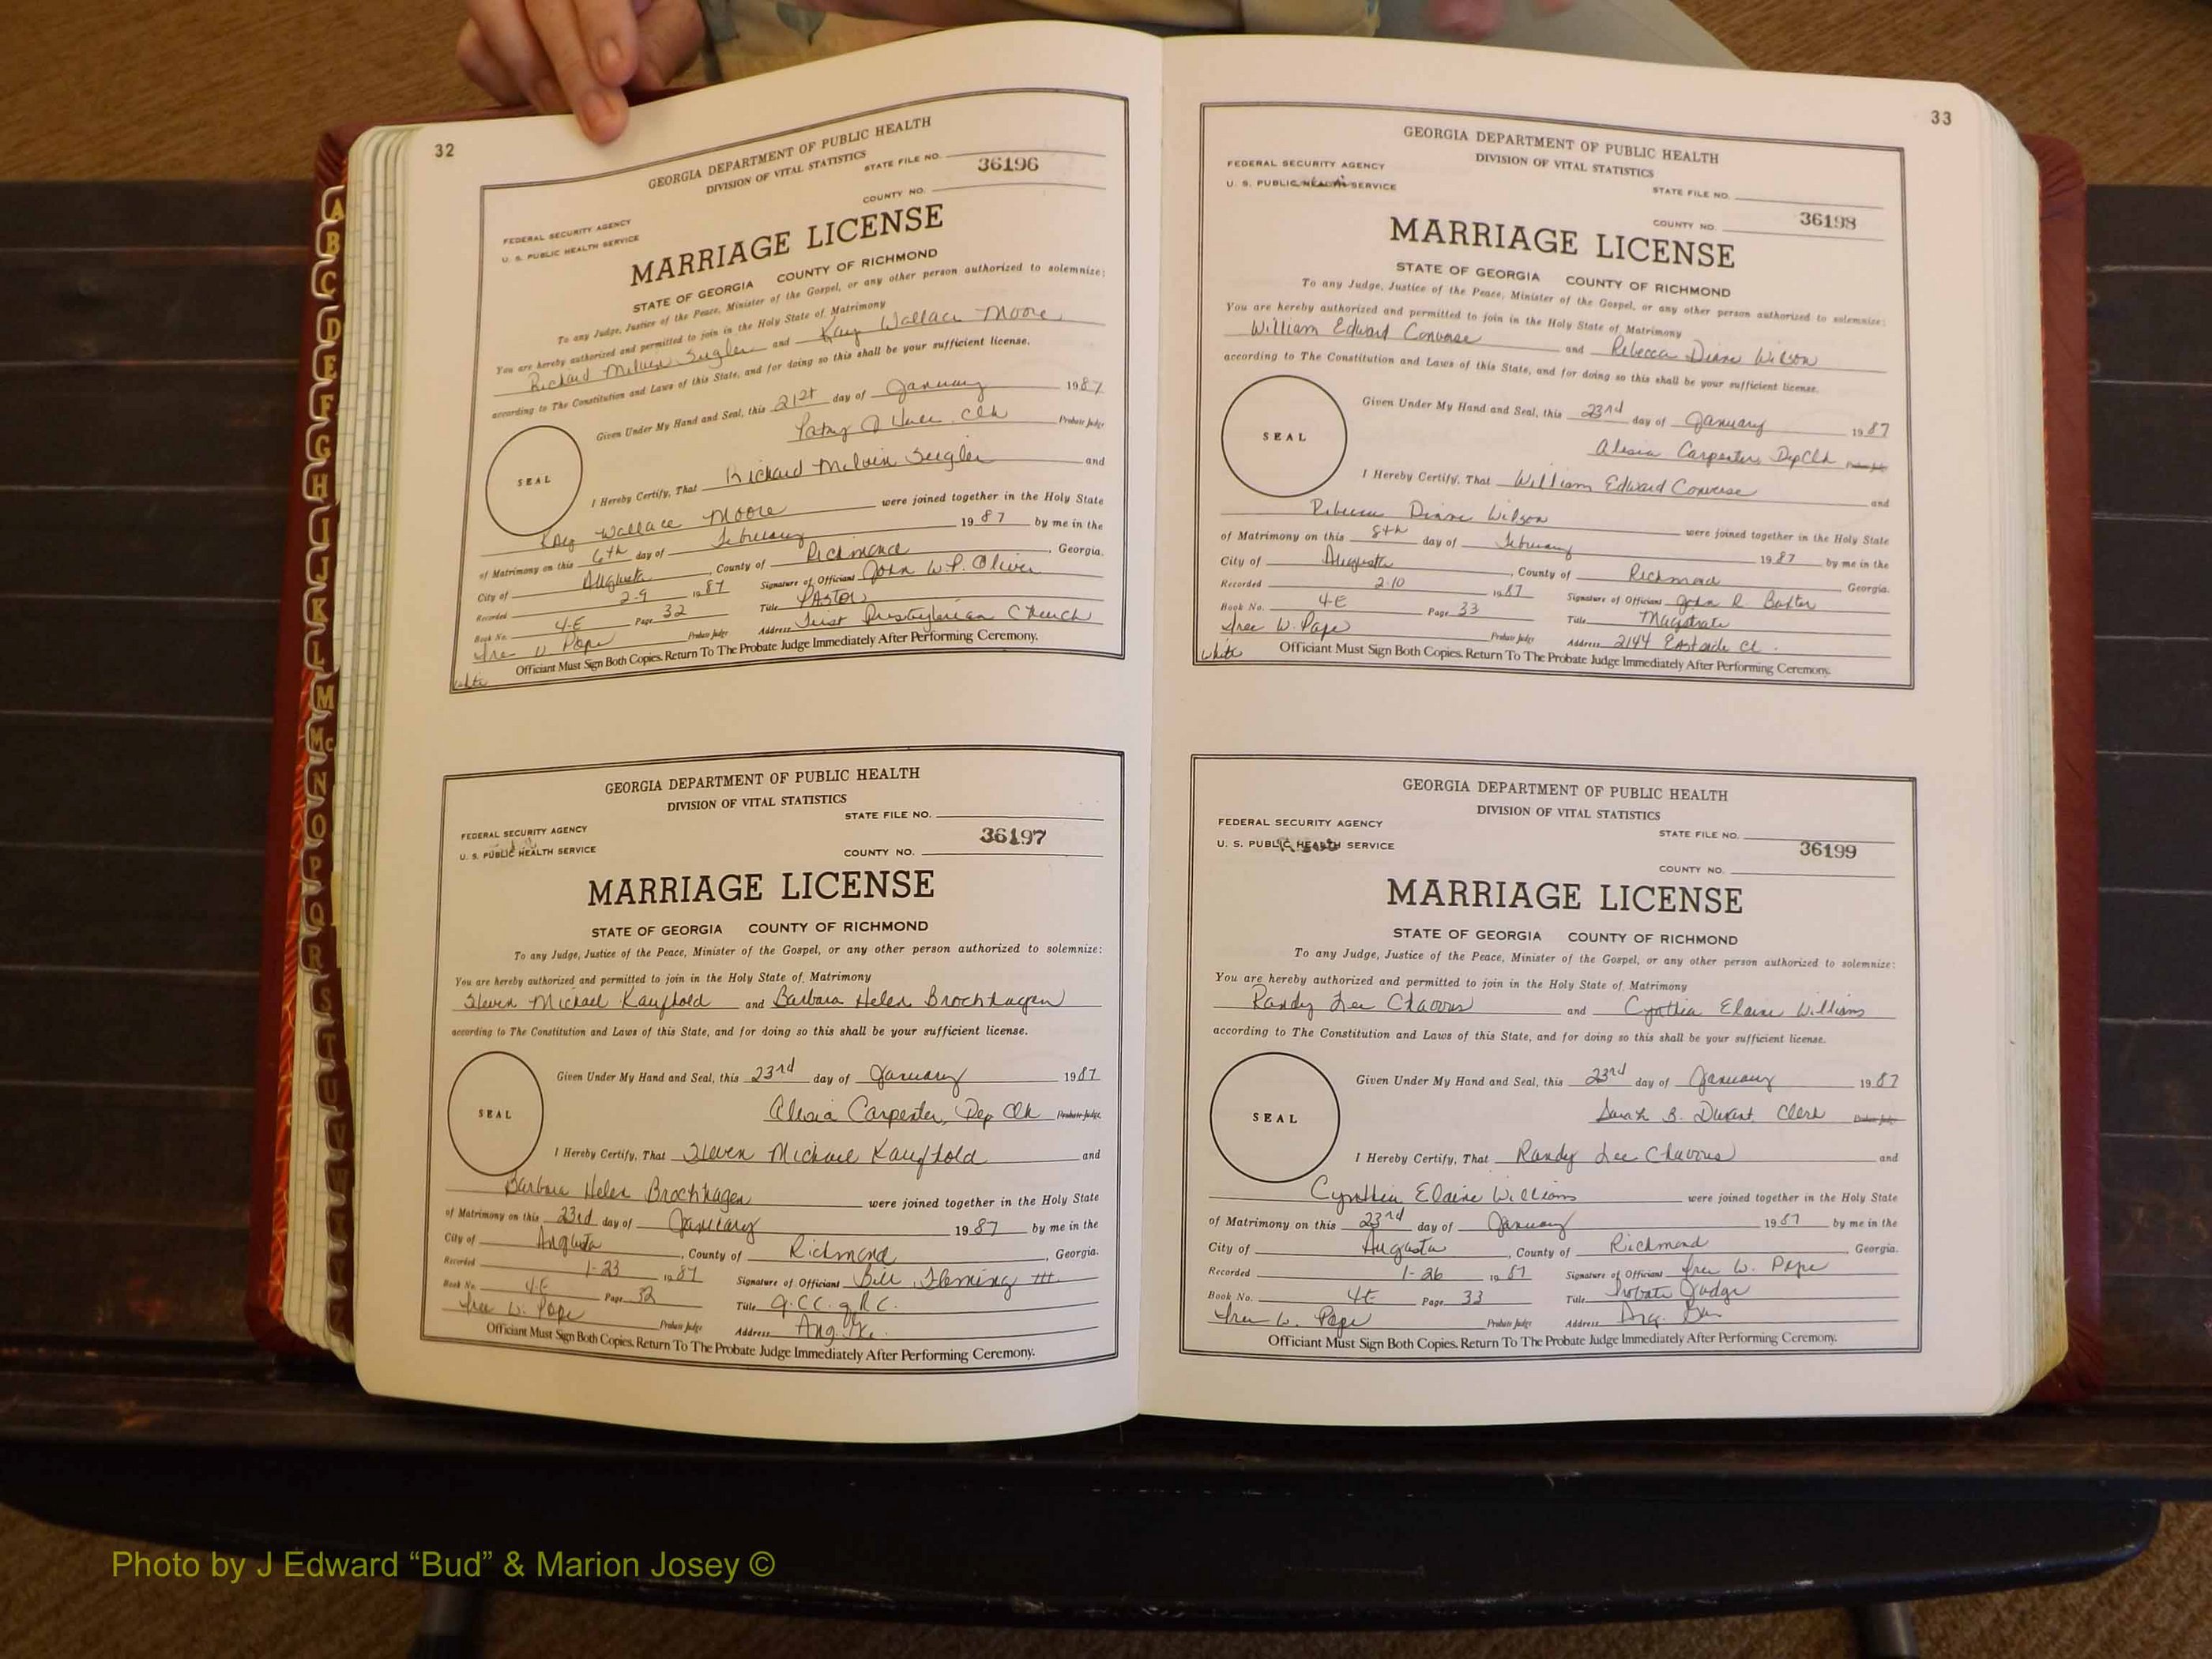 32
GEORGIA DEPARTMENT OF PUBLIC HEALTH
DIVISION OF VITAL STATISTICS
STATE FILE NO.
36196
COUNTY NO.
FEDERAL SECURITY AGENCY
U. S. PUBLIC HEALTH SERVICE
MARRIAGE LICENSE
STATE OF GEORGIA COUNTY OF RICHMOND
To any Judge, Justice of the Peace, Minister of the Gospel, or any other person authorized to solemnize:
You are hereby authorized and permitted to join in the Holy State of Matrimony
Richard Melvin Seigler and Kay Wallace Moore
according to The Constitution and Laws of this State, and for doing so this shall be your sufficient license.
Given Under My Hand and Seal, this 21st day of January 1987
Clk Probate Judge
SEAL
I Hereby Certify, That Richard Melvin Seigler and
Kay Wallace Moore were joined together in the Holy State
of Matrimony on this 6th day of February 1987 by me in the
City of Augusta, County of Richmond, Georgia.
Recorded 2-9 1987 Signature of Officiant John W.P. Oliver
Book No. 4-E Page 32 Title Pastor
W. Pope Probate Judge Address First Presbyterian Church
Officiant Must Sign Both Copies. Return To The Probate Judge Immediately After Performing Ceremony.
white
GEORGIA DEPARTMENT OF PUBLIC HEALTH
DIVISION OF VITAL STATISTICS
STATE FILE NO.
FEDERAL SECURITY AGENCY
36197
U. S. PUBLIC HEALTH SERVICE
COUNTY NO.
MARRIAGE LICENSE
STATE OF GEORGIA COUNTY OF RICHMOND
To any Judge, Justice of the Peace, Minister of the Gospel, or any other person authorized to solemnize:
You are hereby authorized and permitted to join in the Holy State of Matrimony
Steven Michael Kaufhold and Barbara Helen Brochhagen
according to The Constitution and Laws of this State, and for doing so this shall be your sufficient license.
Given Under My Hand and Seal, this 23rd day of January 1987
Alesia Carpenter, Dep Clk Probate Judge
SEAL
I Hereby Certify, That Steven Michael Kaufhold and
Barbara Helen Brochhagen were joined together in the Holy State
of Matrimony on this 23rd day of January 1987 by me in the
City of Augusta, County of Richmond, Georgia.
Recorded 1-23 1987 Signature of Officiant Bill Fleming III
Book No. 4-E Page 32 Title
W. Pope Probate Judge Address
Officiant Must Sign Both Copies. Return To The Probate Judge Immediately After Performing Ceremony.
33
GEORGIA DEPARTMENT OF PUBLIC HEALTH
DIVISION OF VITAL STATISTICS
FEDERAL SECURITY AGENCY
U. S. PUBLIC HEALTH SERVICE
STATE FILE NO.
36198
COUNTY NO.
MARRIAGE LICENSE
STATE OF GEORGIA COUNTY OF RICHMOND
To any Judge, Justice of the Peace, Minister of the Gospel, or any other person authorized to solemnize:
You are hereby authorized and permitted to join in the Holy State of Matrimony
William Edward Converse and Rebecca Diane Wilson
according to The Constitution and Laws of this State, and for doing so this shall be your sufficient license.
Given Under My Hand and Seal, this 23rd day of January 1987
Alesia Carpenter, Dep Clk Probate Judge
SEAL
I Hereby Certify, That William Edward Converse and
Rebecca Diane Wilson were joined together in the Holy State
of Matrimony on this 8th day of February 1987 by me in the
City of Augusta, County of Richmond, Georgia.
Recorded 2-10 1987 Signature of Officiant John R Baxter
Book No. 4-E Page 33 Title Magistrate
W. Pope Probate Judge Address 2144 Eastside Ct.
white
Officiant Must Sign Both Copies. Return To The Probate Judge Immediately After Performing Ceremony.
GEORGIA DEPARTMENT OF PUBLIC HEALTH
DIVISION OF VITAL STATISTICS
FEDERAL SECURITY AGENCY
STATE FILE NO.
U. S. PUBLIC HEALTH SERVICE
36199
COUNTY NO.
MARRIAGE LICENSE
STATE OF GEORGIA COUNTY OF RICHMOND
To any Judge, Justice of the Peace, Minister of the Gospel, or any other person authorized to solemnize:
You are hereby authorized and permitted to join in the Holy State of Matrimony
Randy Lee Chavous and Cynthia Elaine Williams
according to The Constitution and Laws of this State, and for doing so this shall be your sufficient license.
Given Under My Hand and Seal, this 23rd day of January 1987
Sarah B. Durant Clerk Probate Judge
SEAL
I Hereby Certify, That Randy Lee Chavous and
Cynthia Elaine Williams were joined together in the Holy State
of Matrimony on this 23rd day of January 1987 by me in the
City of Augusta, County of Richmond, Georgia.
Recorded 1-26 1987 Signature of Officiant W. Pope
Book No. 4E Page 33 Title Probate Judge
W. Pope Probate Judge Address
Officiant Must Sign Both Copies. Return To The Probate Judge Immediately After Performing Ceremony.
A
B
C
D
E
F
G
H
I
J
K
L
M
Mc
N
O
P
Q
R
S
T
U
V
Photo by J Edward “Bud” & Marion Josey ©